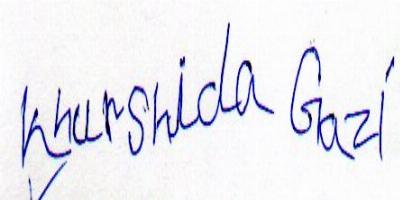 Khurshida Gazi